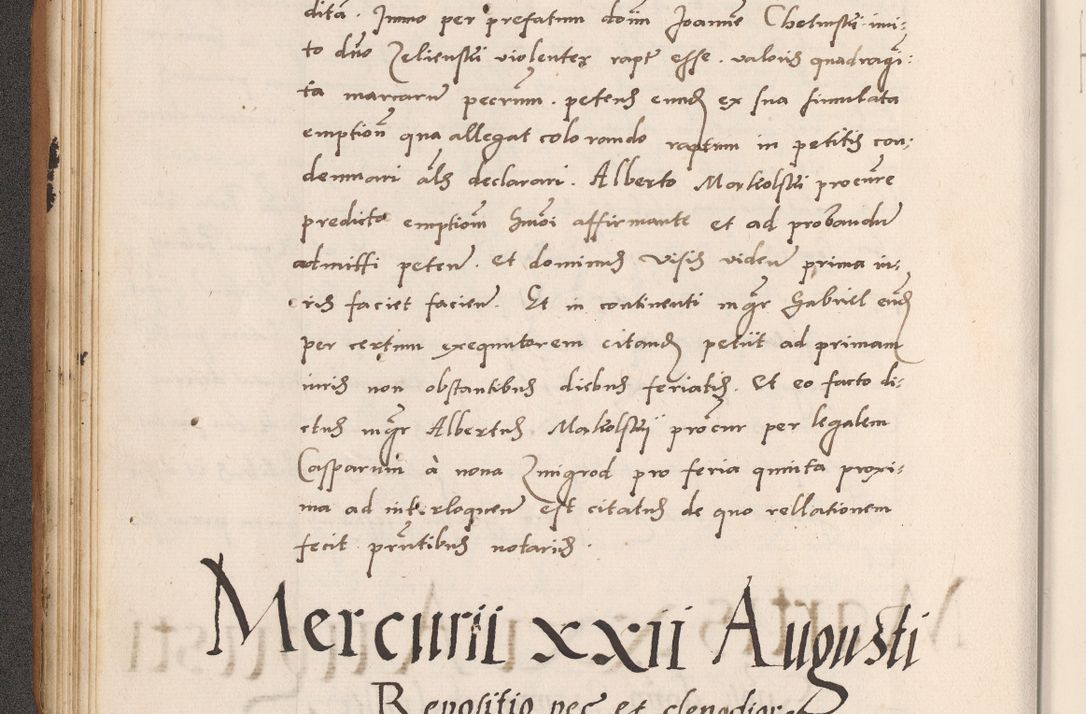 dita. Immo per prefatum dom̄ Joannē Chelmskii inui⸗
to dn̄o Zelienskii violenter rapt esse. valoris quadragī⸗
ta marcarū pecun̄. petens eund ex sua simulata
emptioñ qua allegat colorando raptum in petitis con⸗
demnari als̄ declarari. Alberto Markolskii procure
predicto emptioñ hm̄oi affirmante et ad probandū
admitti petenᵗ. et dominus visis videnᵗ prima iu⸗
ris faciet facienᵗ. Et in continenti mgr Gabriel eund
per certum exequutorem citand petiit ad primam
iuris non obstantibus diebus feriatis. Et eo facto di⸗
ctus mgr Albertus Markolskij procur per legalem
Casparum à nona Zmigrod pro feria quinta proxi⸗
ma ad interloquenᵗ est citatus de quo rellationem
fecit prn̄tibus notariis.
Mercurii xxii Augusti
Repositio pec et clenodior